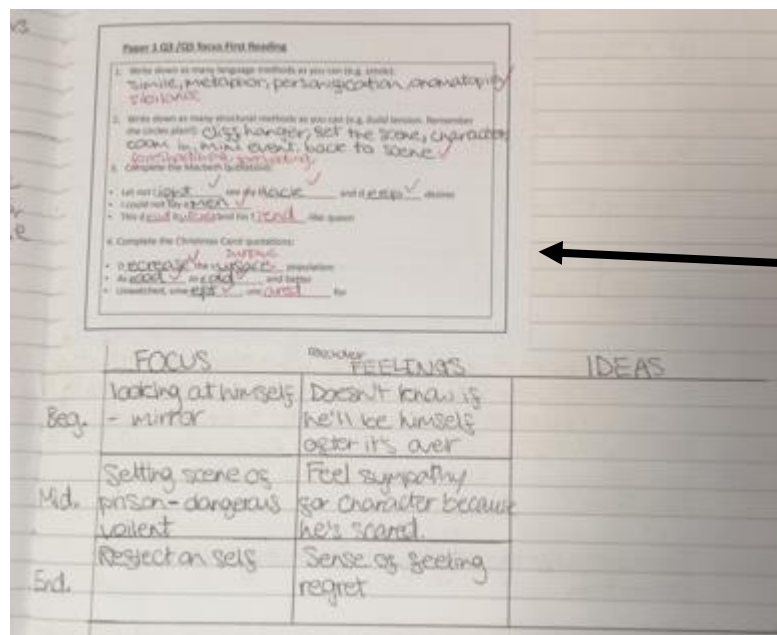 Paper 1 Q3 /Q5 focus First Reading
1. Write down as many language methods as you can (e.g. simile):
simile, metaphor, personification, onomatopoeia
sibilance
2. Write down as many structural methods as you can (e.g. Build tension. Remember
the circles plan!): cliff hanger, set the scene, character,
zoom in, mini event, back to scene ✓
3. Complete the Macbeth quotations:
Let not light see my black and deep desires
I could not say amen
This dead butcher and his fiend like queen
4. Complete the Christmas Carol quotations:
SURPLUS
Decrease the population
As good as and better
Unwatched, unwept, uncared for
FOCUS reader FEELINGS IDEAS
looking at himself Doesn't know if
Beg. - mirror he'll be himself
after it's over
Setting scene of Feel sympathy
Mid. prison - dangerous for character because
voilent he's scared.
Reflect on self Sense of feeling
End. regret